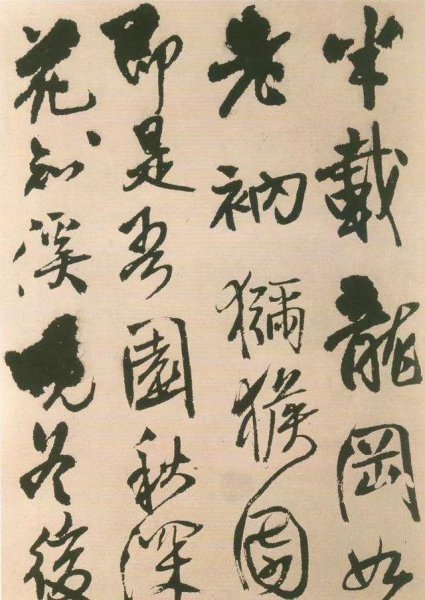 半載龍岡如
老衲獼猴
即是吾園秋深
花知溪見冬後